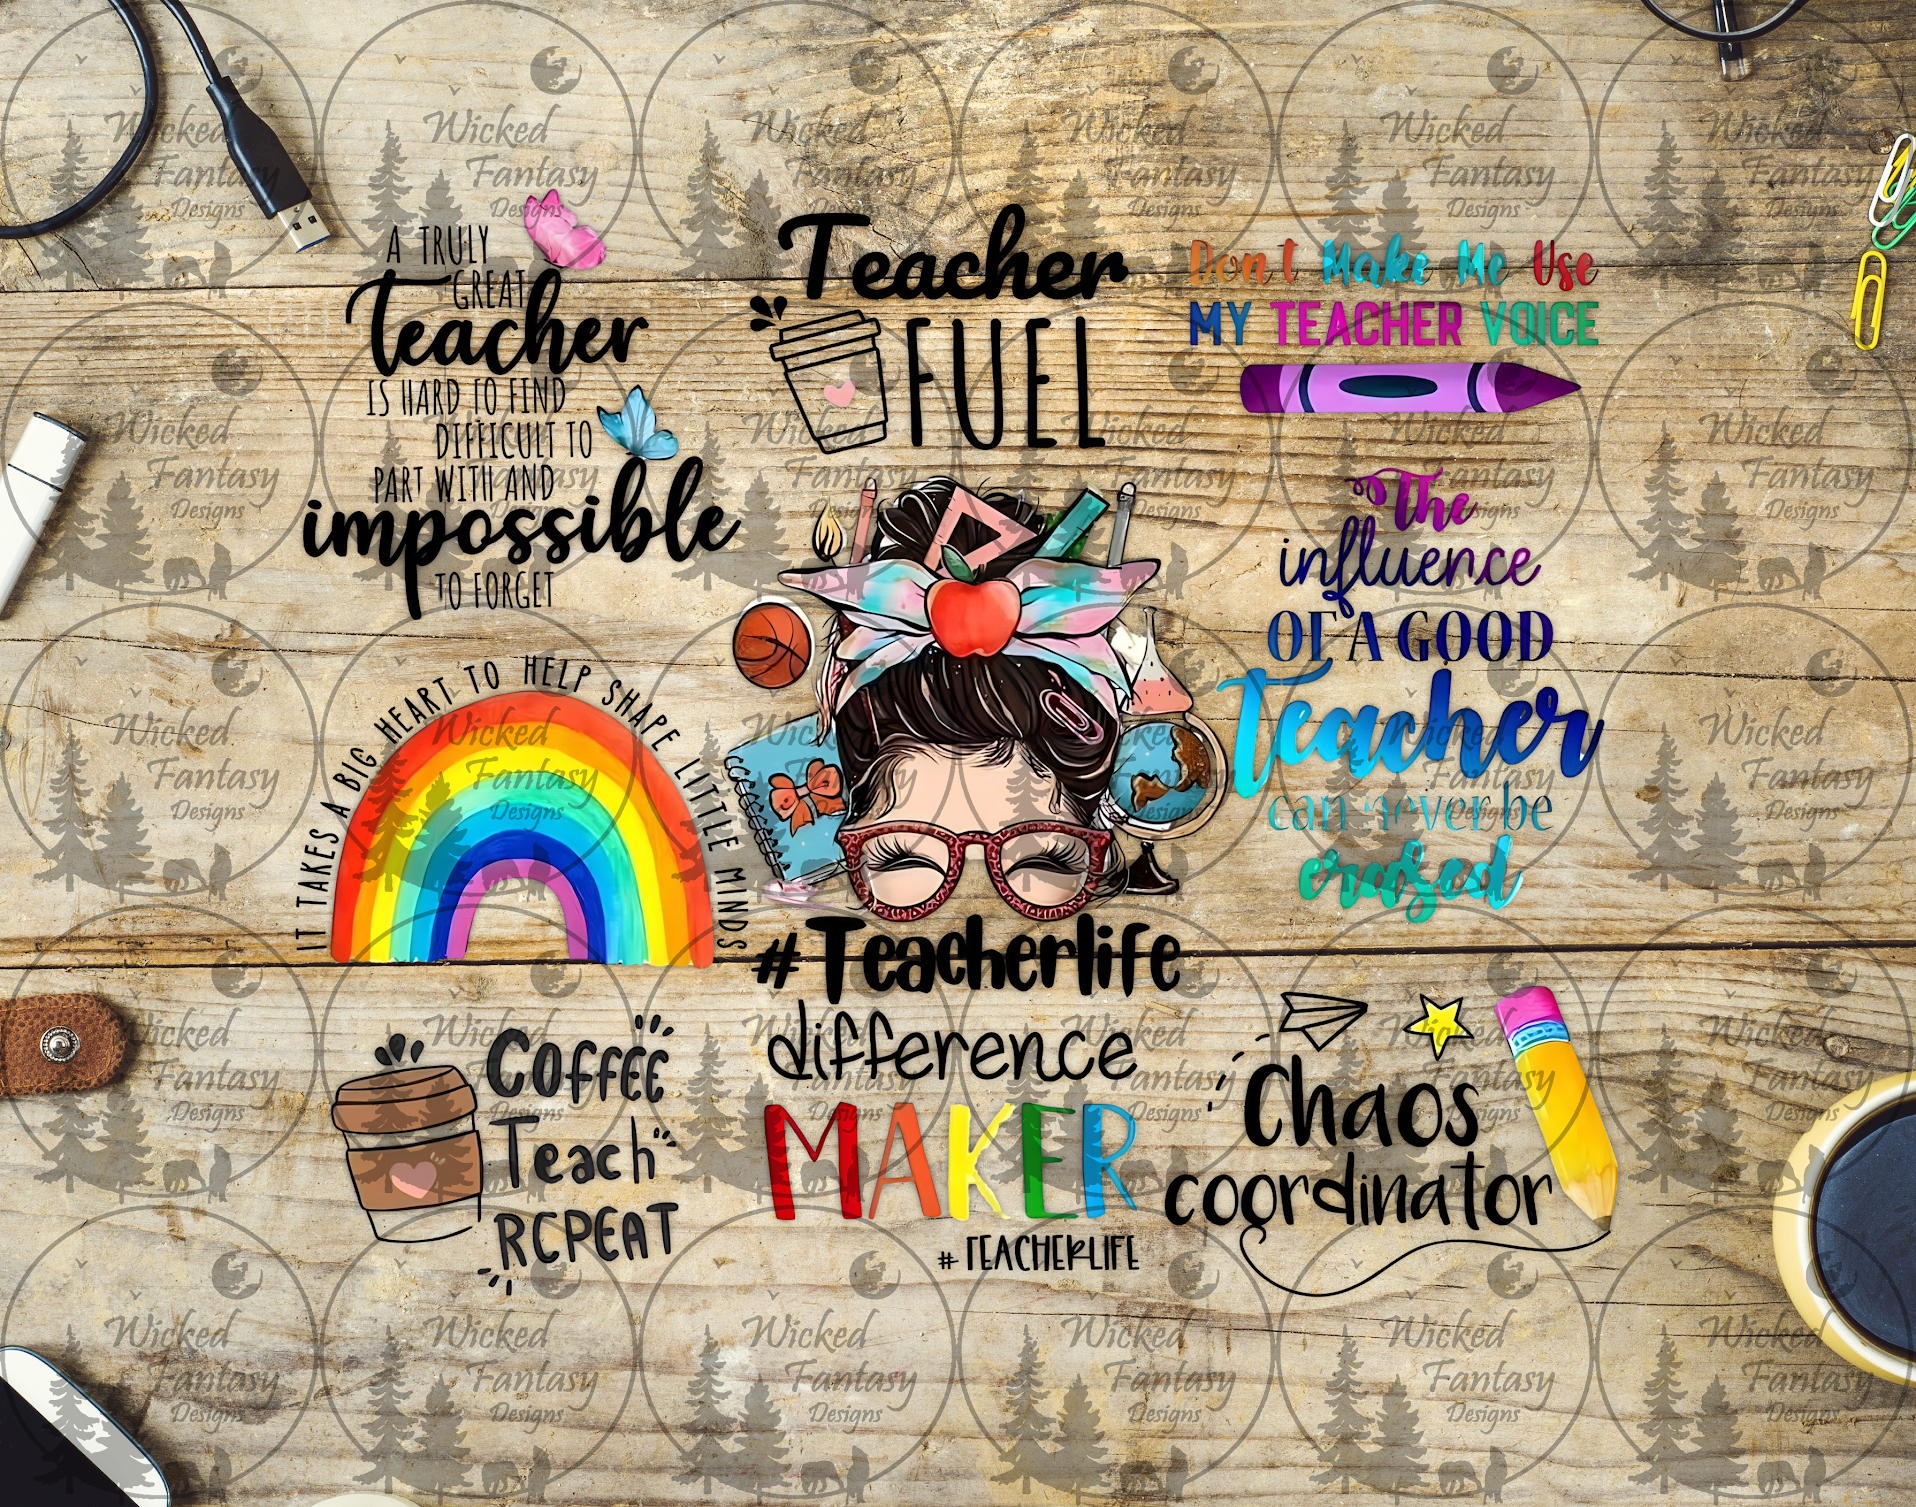 A TRULY
GREAT
Teacher
IS HARD TO FIND
DIFFICULT TO
PART WITH AND
impossible
TO FORGET
Teacher
FUEL
Don't Make Me Use
MY TEACHER VOICE
The
influence
OF A GOOD
Teacher
can never be
erased
IT TAKES A BIG HEART TO HELP SHAPE LITTLE MINDS
#Teacherlife
COFFEE
Teach
REPEAT
difference
MAKER
#TEACHERLIFE
Chaos
coordinator
Wicked
Fantasy
Designs